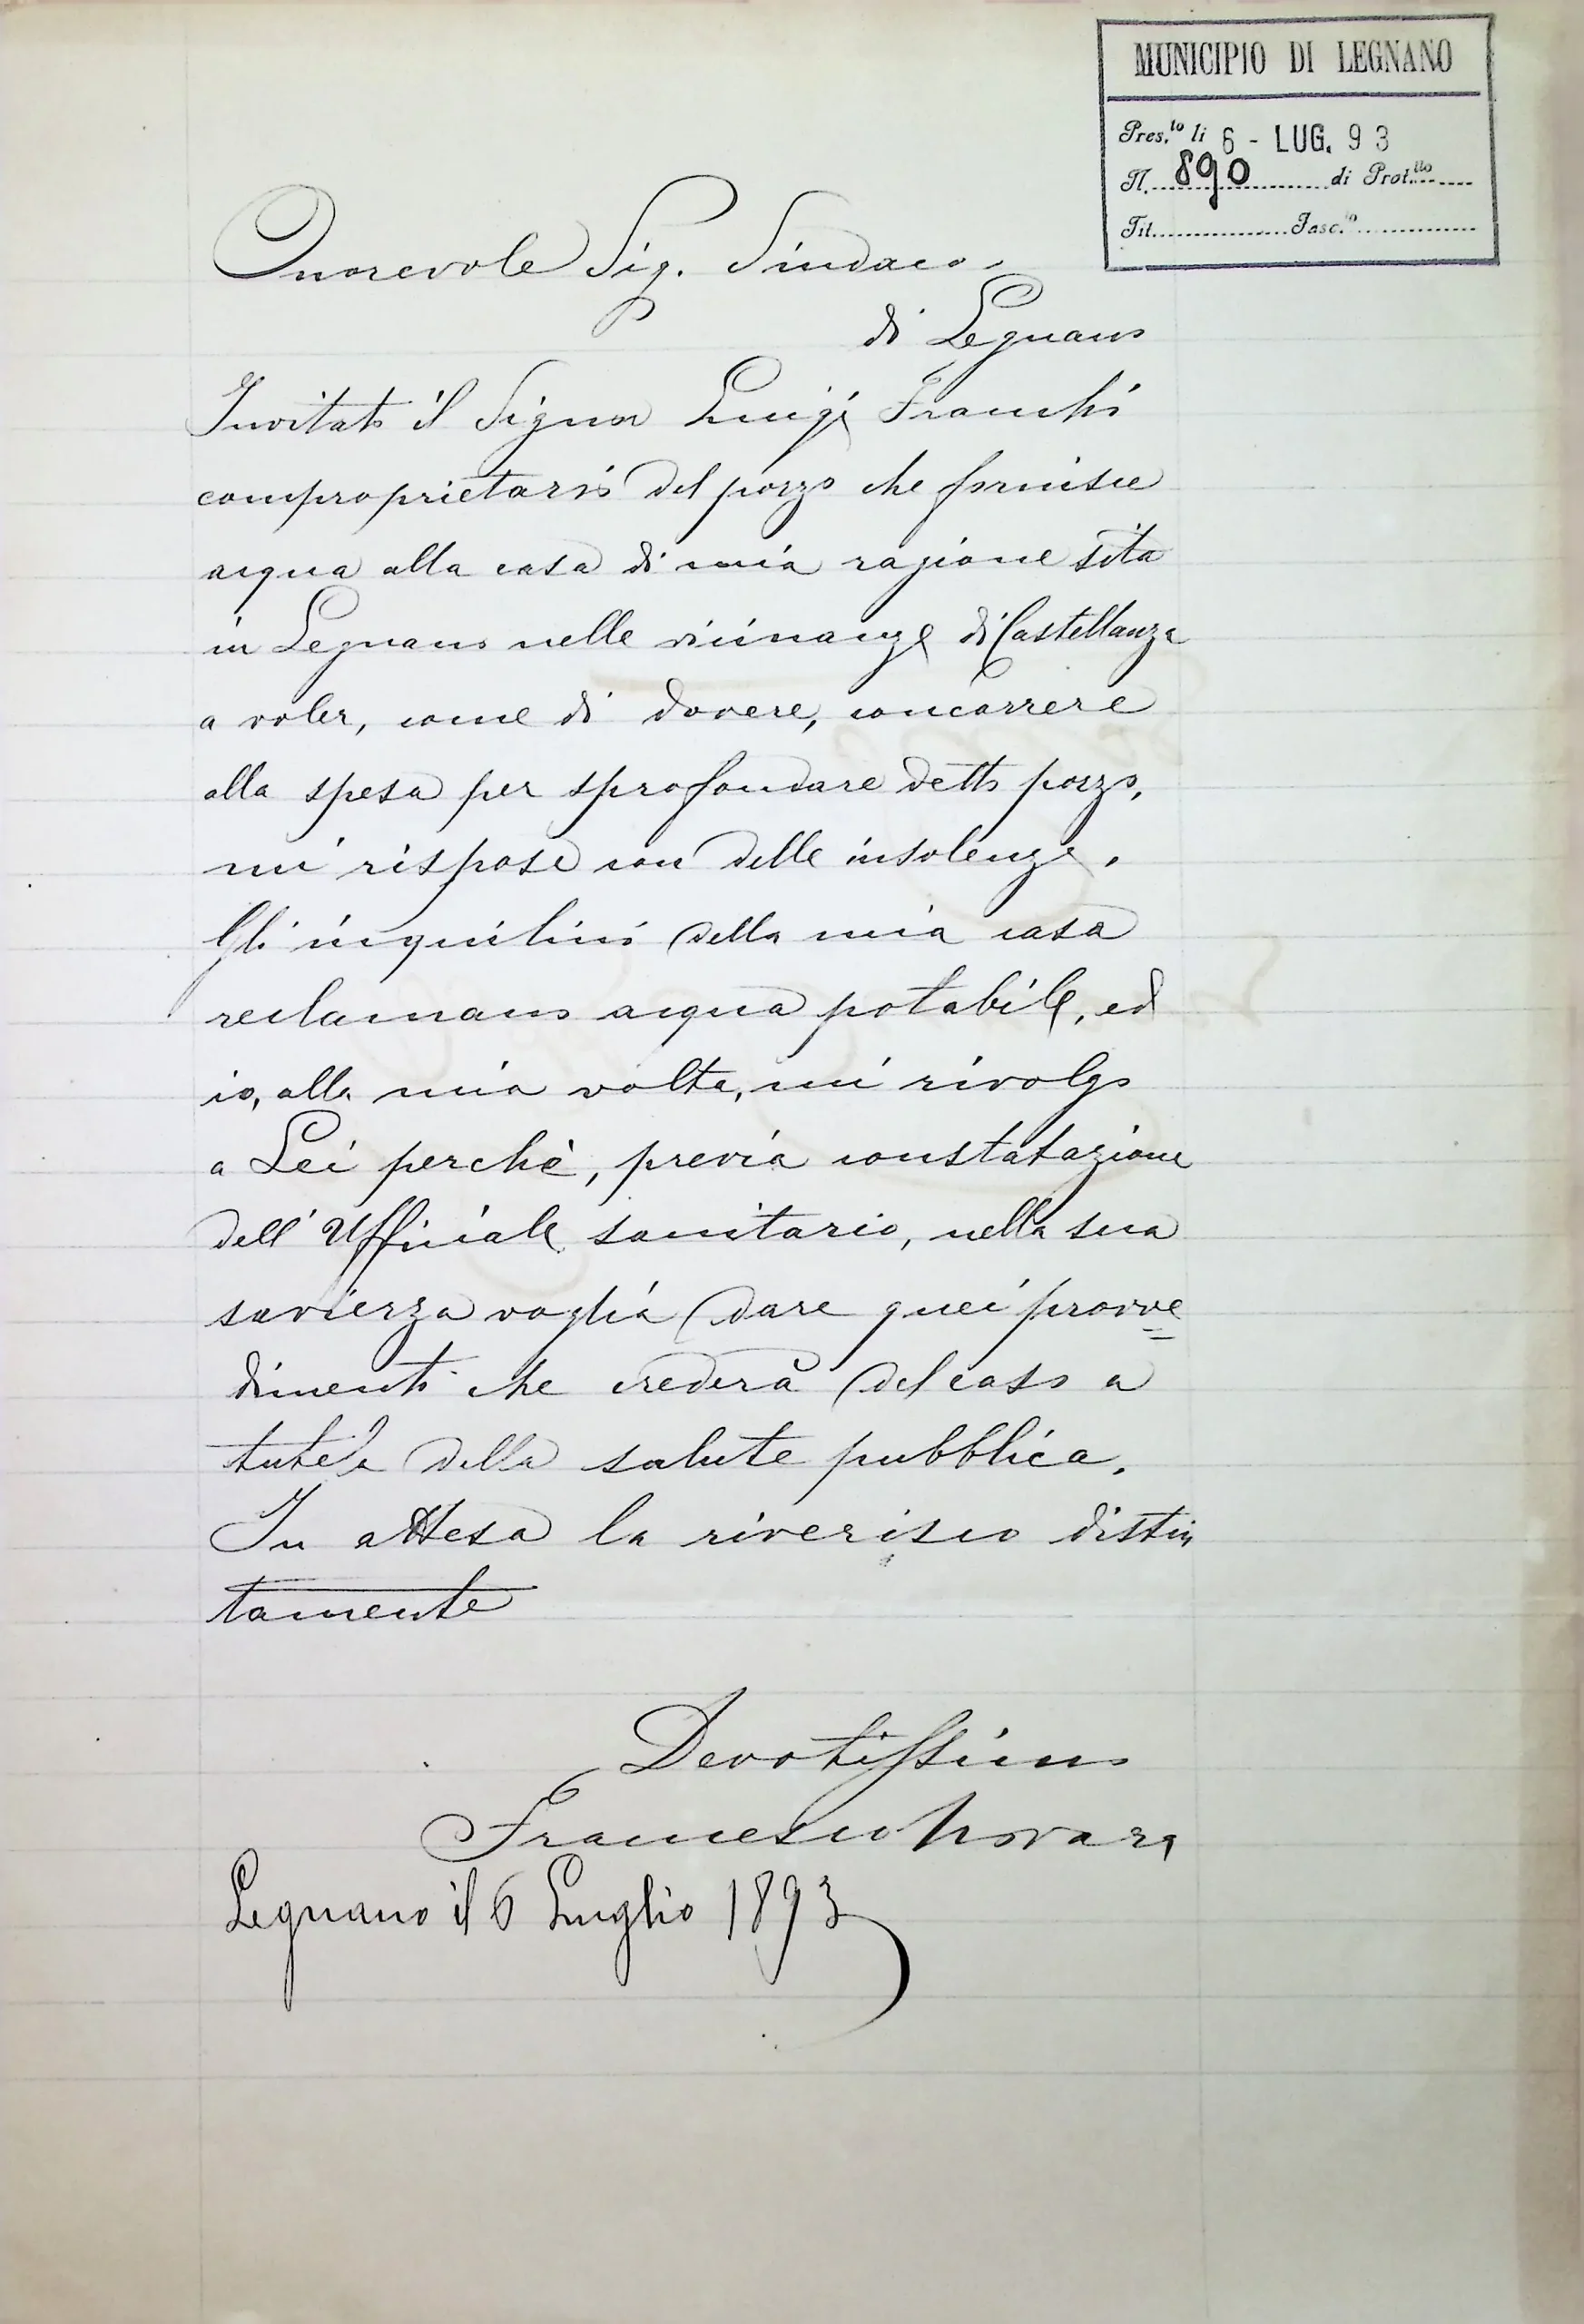 MUNICIPIO DI LEGNANO
Pres.to li 6 - LUG. 93
N. 890 di Prot.llo
Tit. Fasc.lo
Onorevole Sig. Sindaco
di Legnano
Invitato il Signor Luigi Franchi
comproprietario del pozzo che fornisce
acqua alla casa di mia ragione sita
in Legnano nelle vicinanze di Castellanza
a voler, come di dovere, concorrere
alla spesa per sprofondare detto pozzo,
mi rispose con delle insolenze.
Gli inquilini della mia casa
reclamano acqua potabile, ed
io, alla mia volta, mi rivolgo
a Lei perchè, previa constatazione
dell'Ufficiale sanitario, nella sua
saviezza voglia dare quei provve=
dimenti che crederà del caso a
tutela della salute pubblica.
In attesa la riverisco distin
tamente
Devotissimo
Francesco Novara
Legnano il 6 Luglio 1893